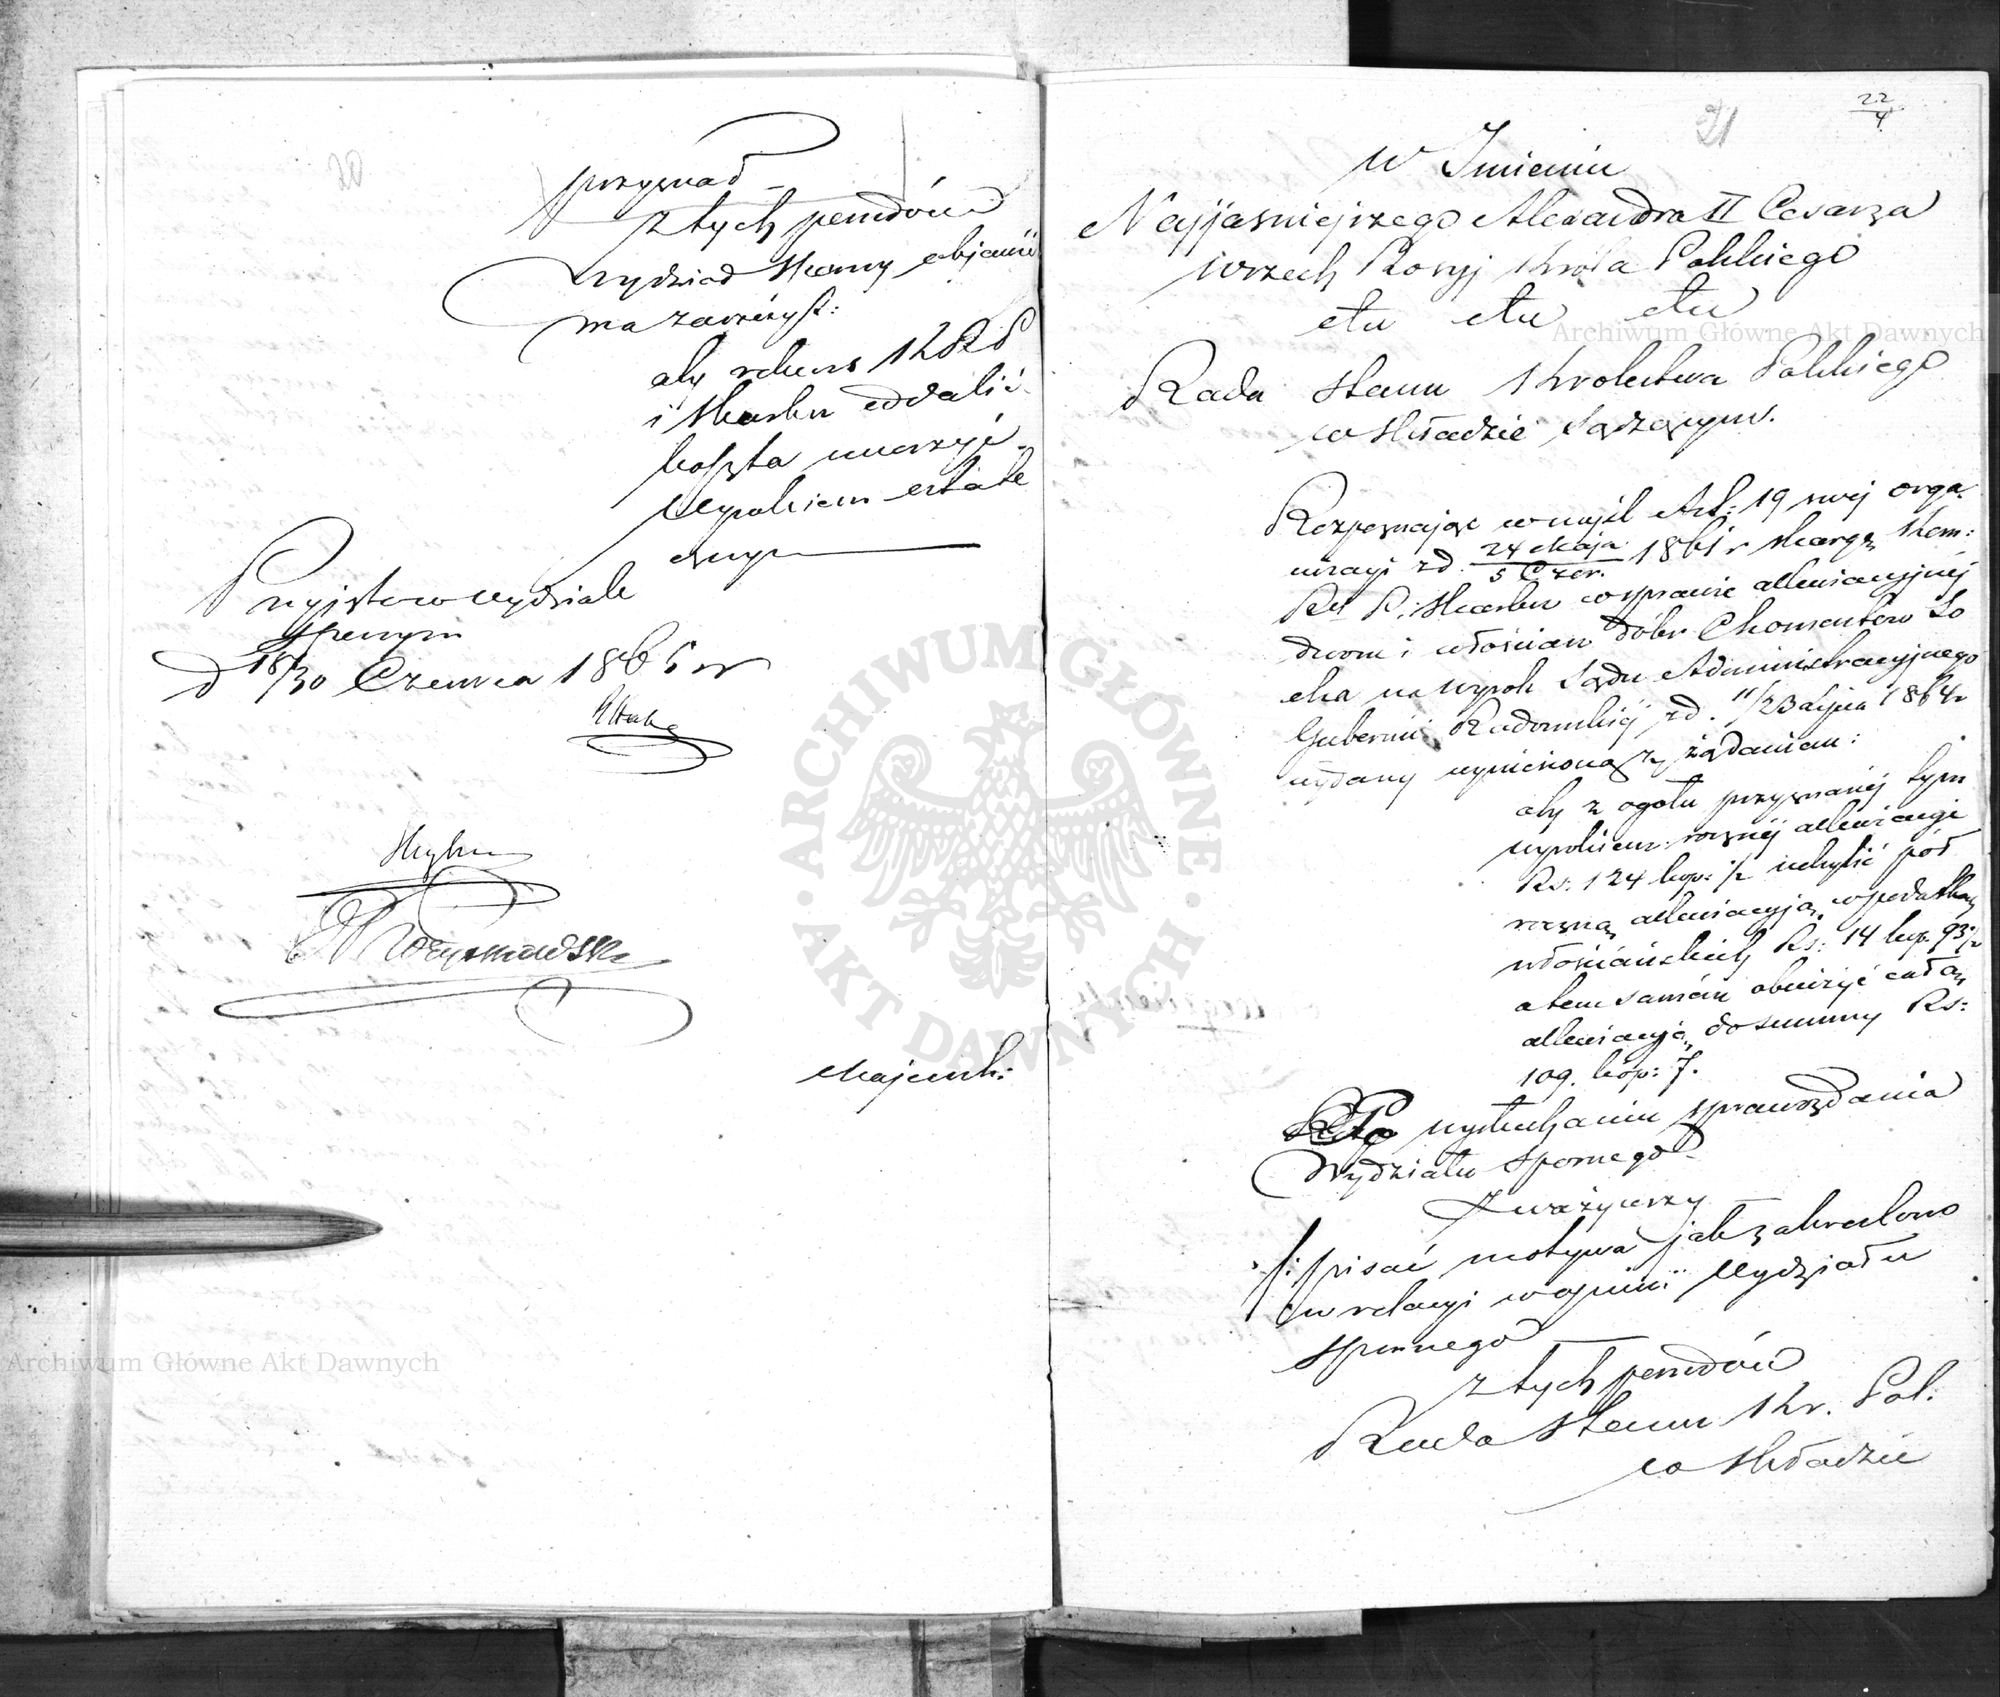 20
przyznał
z tych powodów
Wydział Sporny objawił
ma zaszczyt:
aby rekurs KRPS
i Skarbu oddalić
koszta umorzyć
Wyrokiem ostate
cznym
Przyjęto w Wydziale
Spornym
d 18/30 Czerwca 1865 r
Majewski:
21
22/4
W Imieniu
Najjaśniejszego Alexandra II Cesarza
wszech Rosyj Króla Polskiego
etc etc etc
Rada Stanu Królestwa Polskiego
w składzie Sądzącym.
Rozpoznając w myśl Art: 19 swej orga
nizacyi z d. 24 Maja/5 Czer. 1861 r skargę Kom:
Rz. P. i Skarbu w sprawie allewiacyjnej
dworu i włościan dóbr Chomentów So
cha na wyrok Sądu Administracyjnego
Gubernii Radomskiej z d. 11/23 Lipca 1864 r
wydany wyniesioną z żądaniem:
aby z ogółu przyznanej tym
wyrokiem rocznej allewiacyi
Rs. 124 kop: ½ uchylić pół
roczną allewiacyją w podatkach
włościańskich Rs: 14 kop. 93½
a tem samem obniżyć całą
allewiacyją do summy Rs:
109. kop: 7.
Po wysłuchaniu sprawozdania
Wydziału Spornego
Zważywszy
/: pisać motywa jak zakreślono
w relacyi w opinii Wydziału
Spornego
z tych powodów
Rada Stanu Kr. Pol.
w składzie
Archiwum Główne Akt Dawnych
Archiwum Główne Akt Dawnych
ARCHIWUM GŁÓWNE AKT DAWNYCH